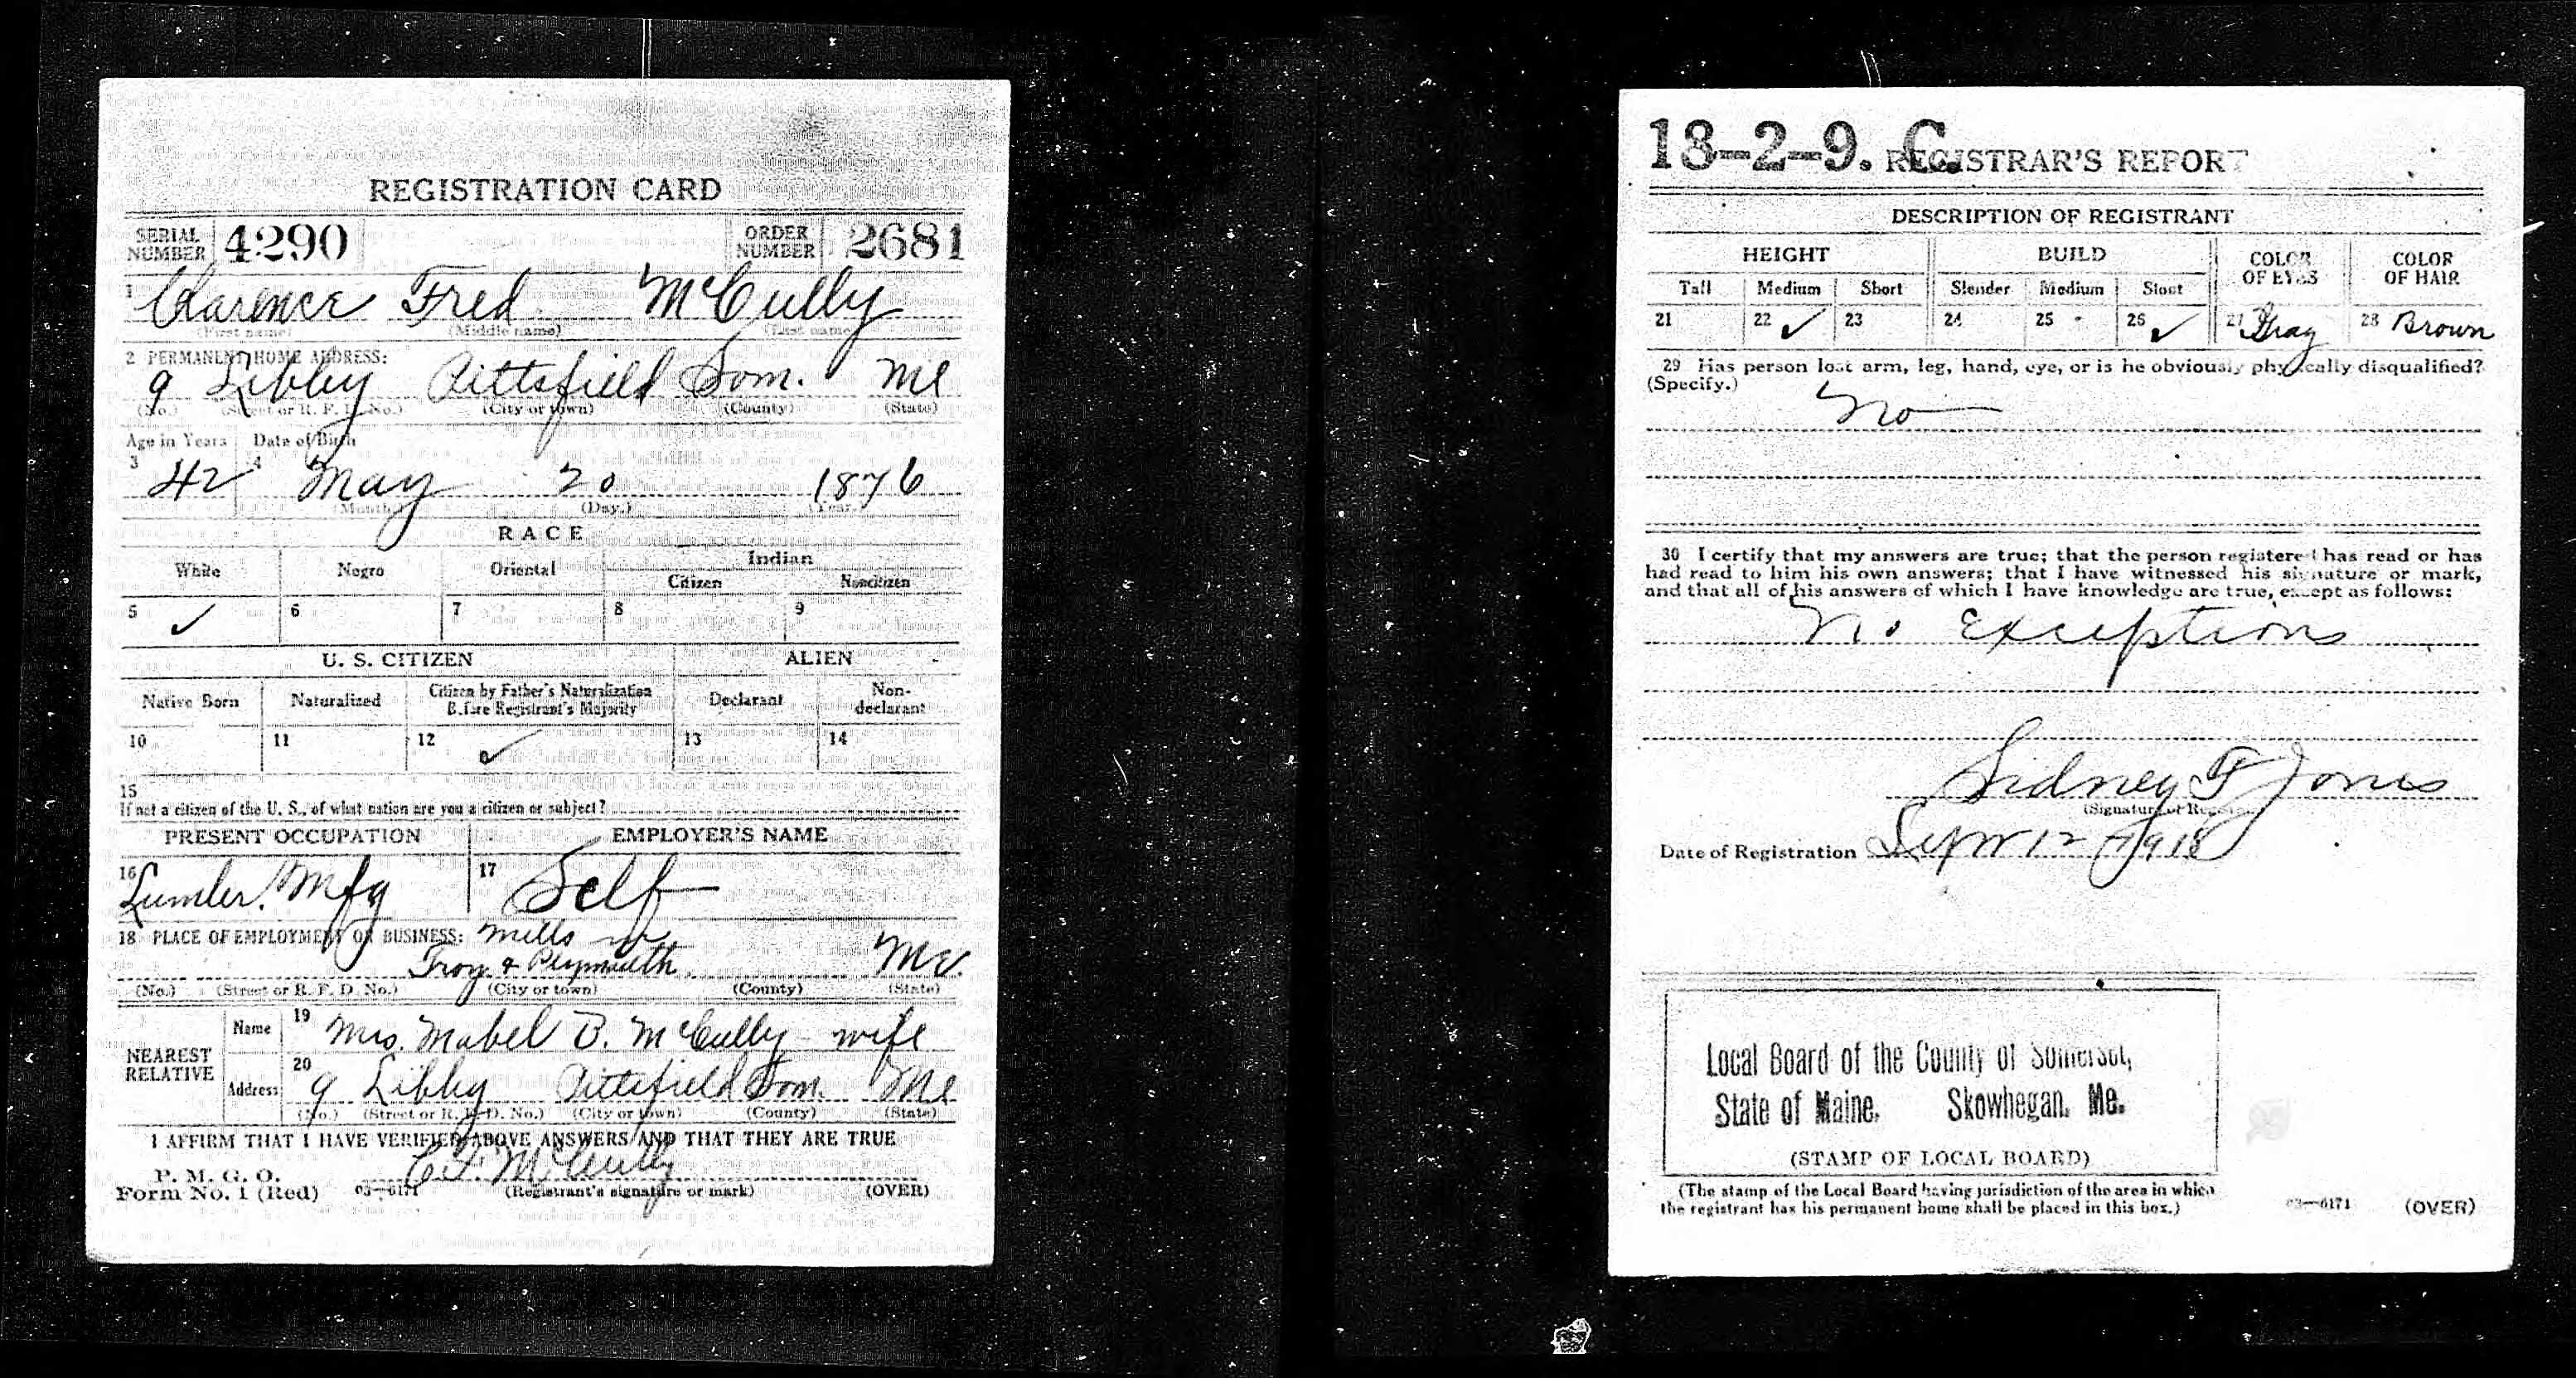 REGISTRATION CARD
SERIAL NUMBER 4290 ORDER NUMBER 2681
1 Clarence Fred McCully
(First name) (Middle name) (Last name)
2 PERMANENT HOME ADDRESS:
9 Libby Pittsfield Som. Me
(No.) (Street or R. F. D. No.) (City or town) (County) (State)
Age in Years Date of Birth
3 42 4 May 20 1876
(Month.) (Day.) (Year.)
RACE
White Negro Oriental Indian
Citizen Noncitizen
5 ✓ 6 7 8 9
U. S. CITIZEN ALIEN
Native Born Naturalized Citizen by Father's Naturalization Before Registrant's Majority Declarant Non-declarant
10 11 12 ✓ 13 14
15
If not a citizen of the U. S., of what nation are you a citizen or subject?
PRESENT OCCUPATION EMPLOYER'S NAME
16 Lumber Mfg 17 Self
18 PLACE OF EMPLOYMENT OR BUSINESS: Mills in
Troy & Plymouth Me.
(No.) (Street or R. F. D. No.) (City or town) (County) (State)
NEAREST RELATIVE
Name 19 Mrs. Mabel B. McCully - wife
Address 20 9 Libby Pittsfield Som. Me
(No.) (Street or R. F. D. No.) (City or town) (County) (State)
I AFFIRM THAT I HAVE VERIFIED ABOVE ANSWERS AND THAT THEY ARE TRUE
P. M. G. O.
Form No. 1 (Red) 03—6171 C. F. McCully
(Registrant's signature or mark) (OVER)
18-2-9. C.
REGISTRAR'S REPORT
DESCRIPTION OF REGISTRANT
HEIGHT BUILD COLOR OF EYES COLOR OF HAIR
Tall Medium Short Slender Medium Stout
21 22 ✓ 23 24 25 26 ✓ 27 Gray 28 Brown
29 Has person lost arm, leg, hand, eye, or is he obviously physically disqualified?
(Specify.)
No
30 I certify that my answers are true; that the person registered has read or has
had read to him his own answers; that I have witnessed his signature or mark,
and that all of his answers of which I have knowledge are true, except as follows:
No Exceptions
Sidney F Jones
(Signature of Registrar)
Date of Registration Sept 12 1918
Local Board of the County of Somerset,
State of Maine. Skowhegan, Me.
(STAMP OF LOCAL BOARD)
(The stamp of the Local Board having jurisdiction of the area in which
the registrant has his permanent home shall be placed in this box.)
03—6171 (OVER)